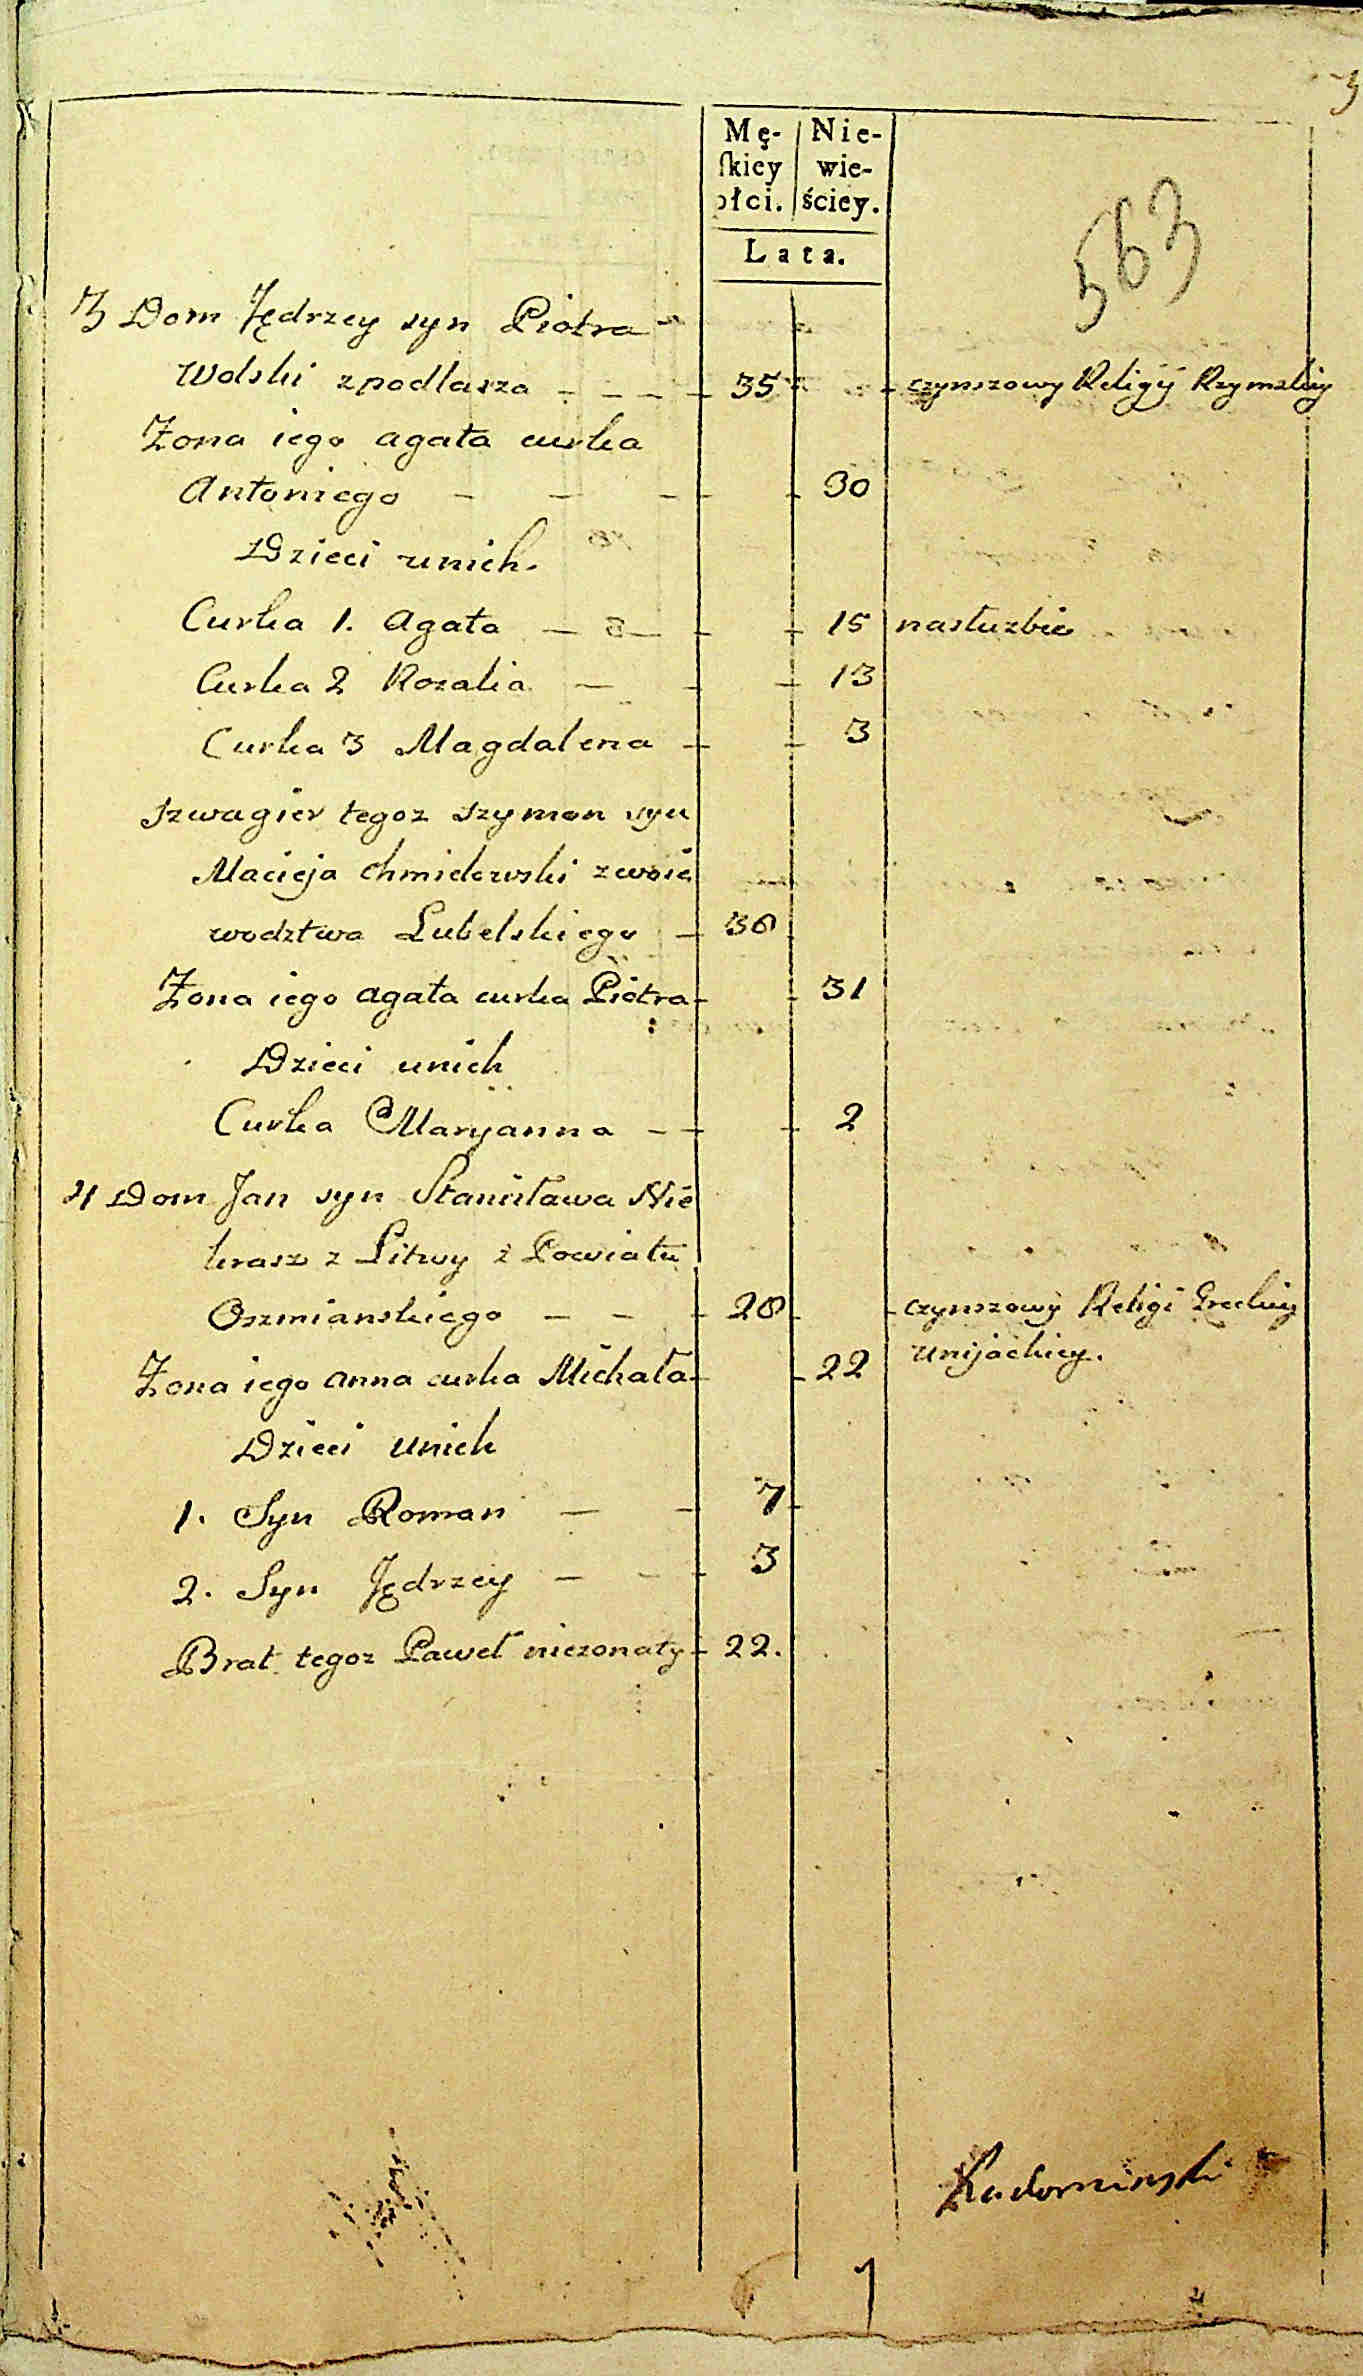 3
Mę- Nie-
ſkiey wie-
płci. ściey.
Lata.
563
3 Dom Jędrzey syn Piotra
Wolski z podlasza 35 czynszowy Religij Rzymskiey
Zona iego agata curka
Antoniego 30
Dzieci unich.
Curka 1. Agata 15 nasłuzbie
Curka 2 Rozalia 13
Curka 3 Magdalena 3
szwagier tegoz szymon syn
Macieja chmielewski z woie
wodztwa Lubelskiego 36
Zona iego agata curka Piotra 31
Dzieci unich
Curka Maryanna 2
4 Dom Jan syn Stanisława Nie
krasz z Litwy z Powiatu
Oszmianskiego 28 czynszowy Religi Greckiey
unijackiey.
Zona iego anna curka Michała 22
Dzieci unich
1. Syn Roman 7
2. Syn Jędrzey 3
Brat tegoz Paweł niezonaty 22.
Radominski